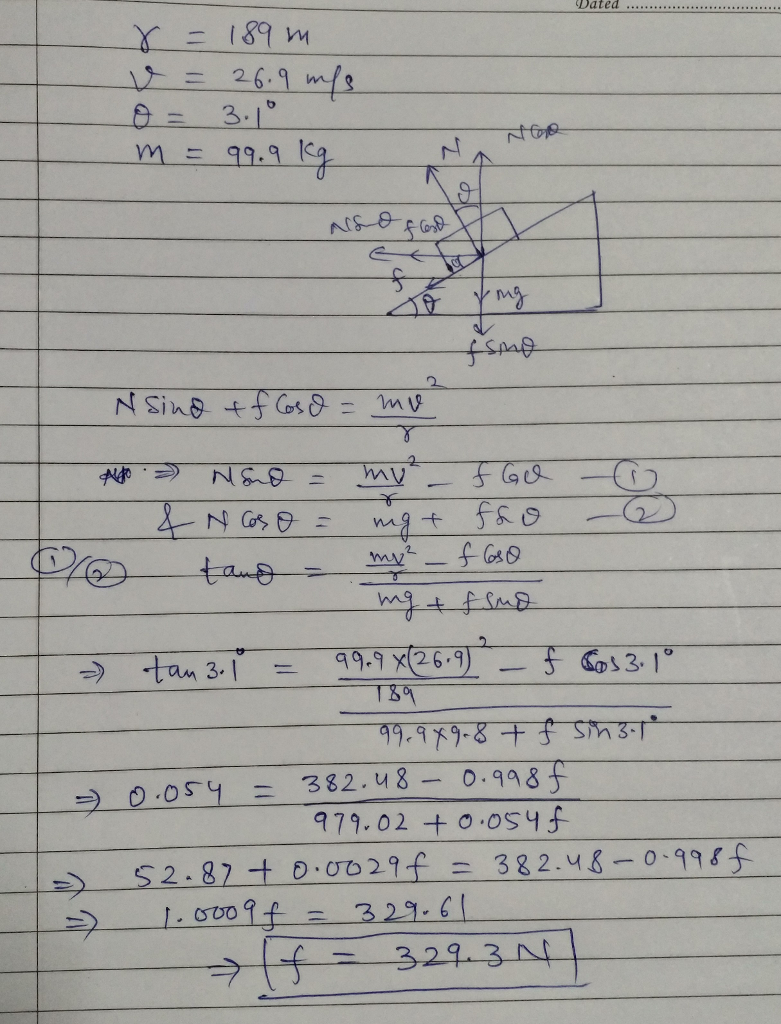 Dated
r = 189 m
v = 26.9 m/s
θ = 3.1°
m = 99.9 Kg
N N Cosθ
θ
N Sinθ f Cosθ
θ
f
θ mg
f Sinθ
N Sinθ + f Cosθ = mv²/r
⇒ N Sinθ = mv²/r - f Cosθ — ①
& N Cosθ = mg + f Sinθ — ②
①/② tanθ = (mv²/r - f Cosθ)/(mg + f Sinθ)
⇒ tan 3.1° = (99.9×(26.9)²/189 - f Cos 3.1°)/(99.9×9.8 + f Sin 3.1°)
⇒ 0.054 = (382.48 - 0.998f)/(979.02 + 0.054f)
⇒ 52.87 + 0.0029f = 382.48 - 0.998f
⇒ 1.0009f = 329.61
⇒ f = 329.3 N